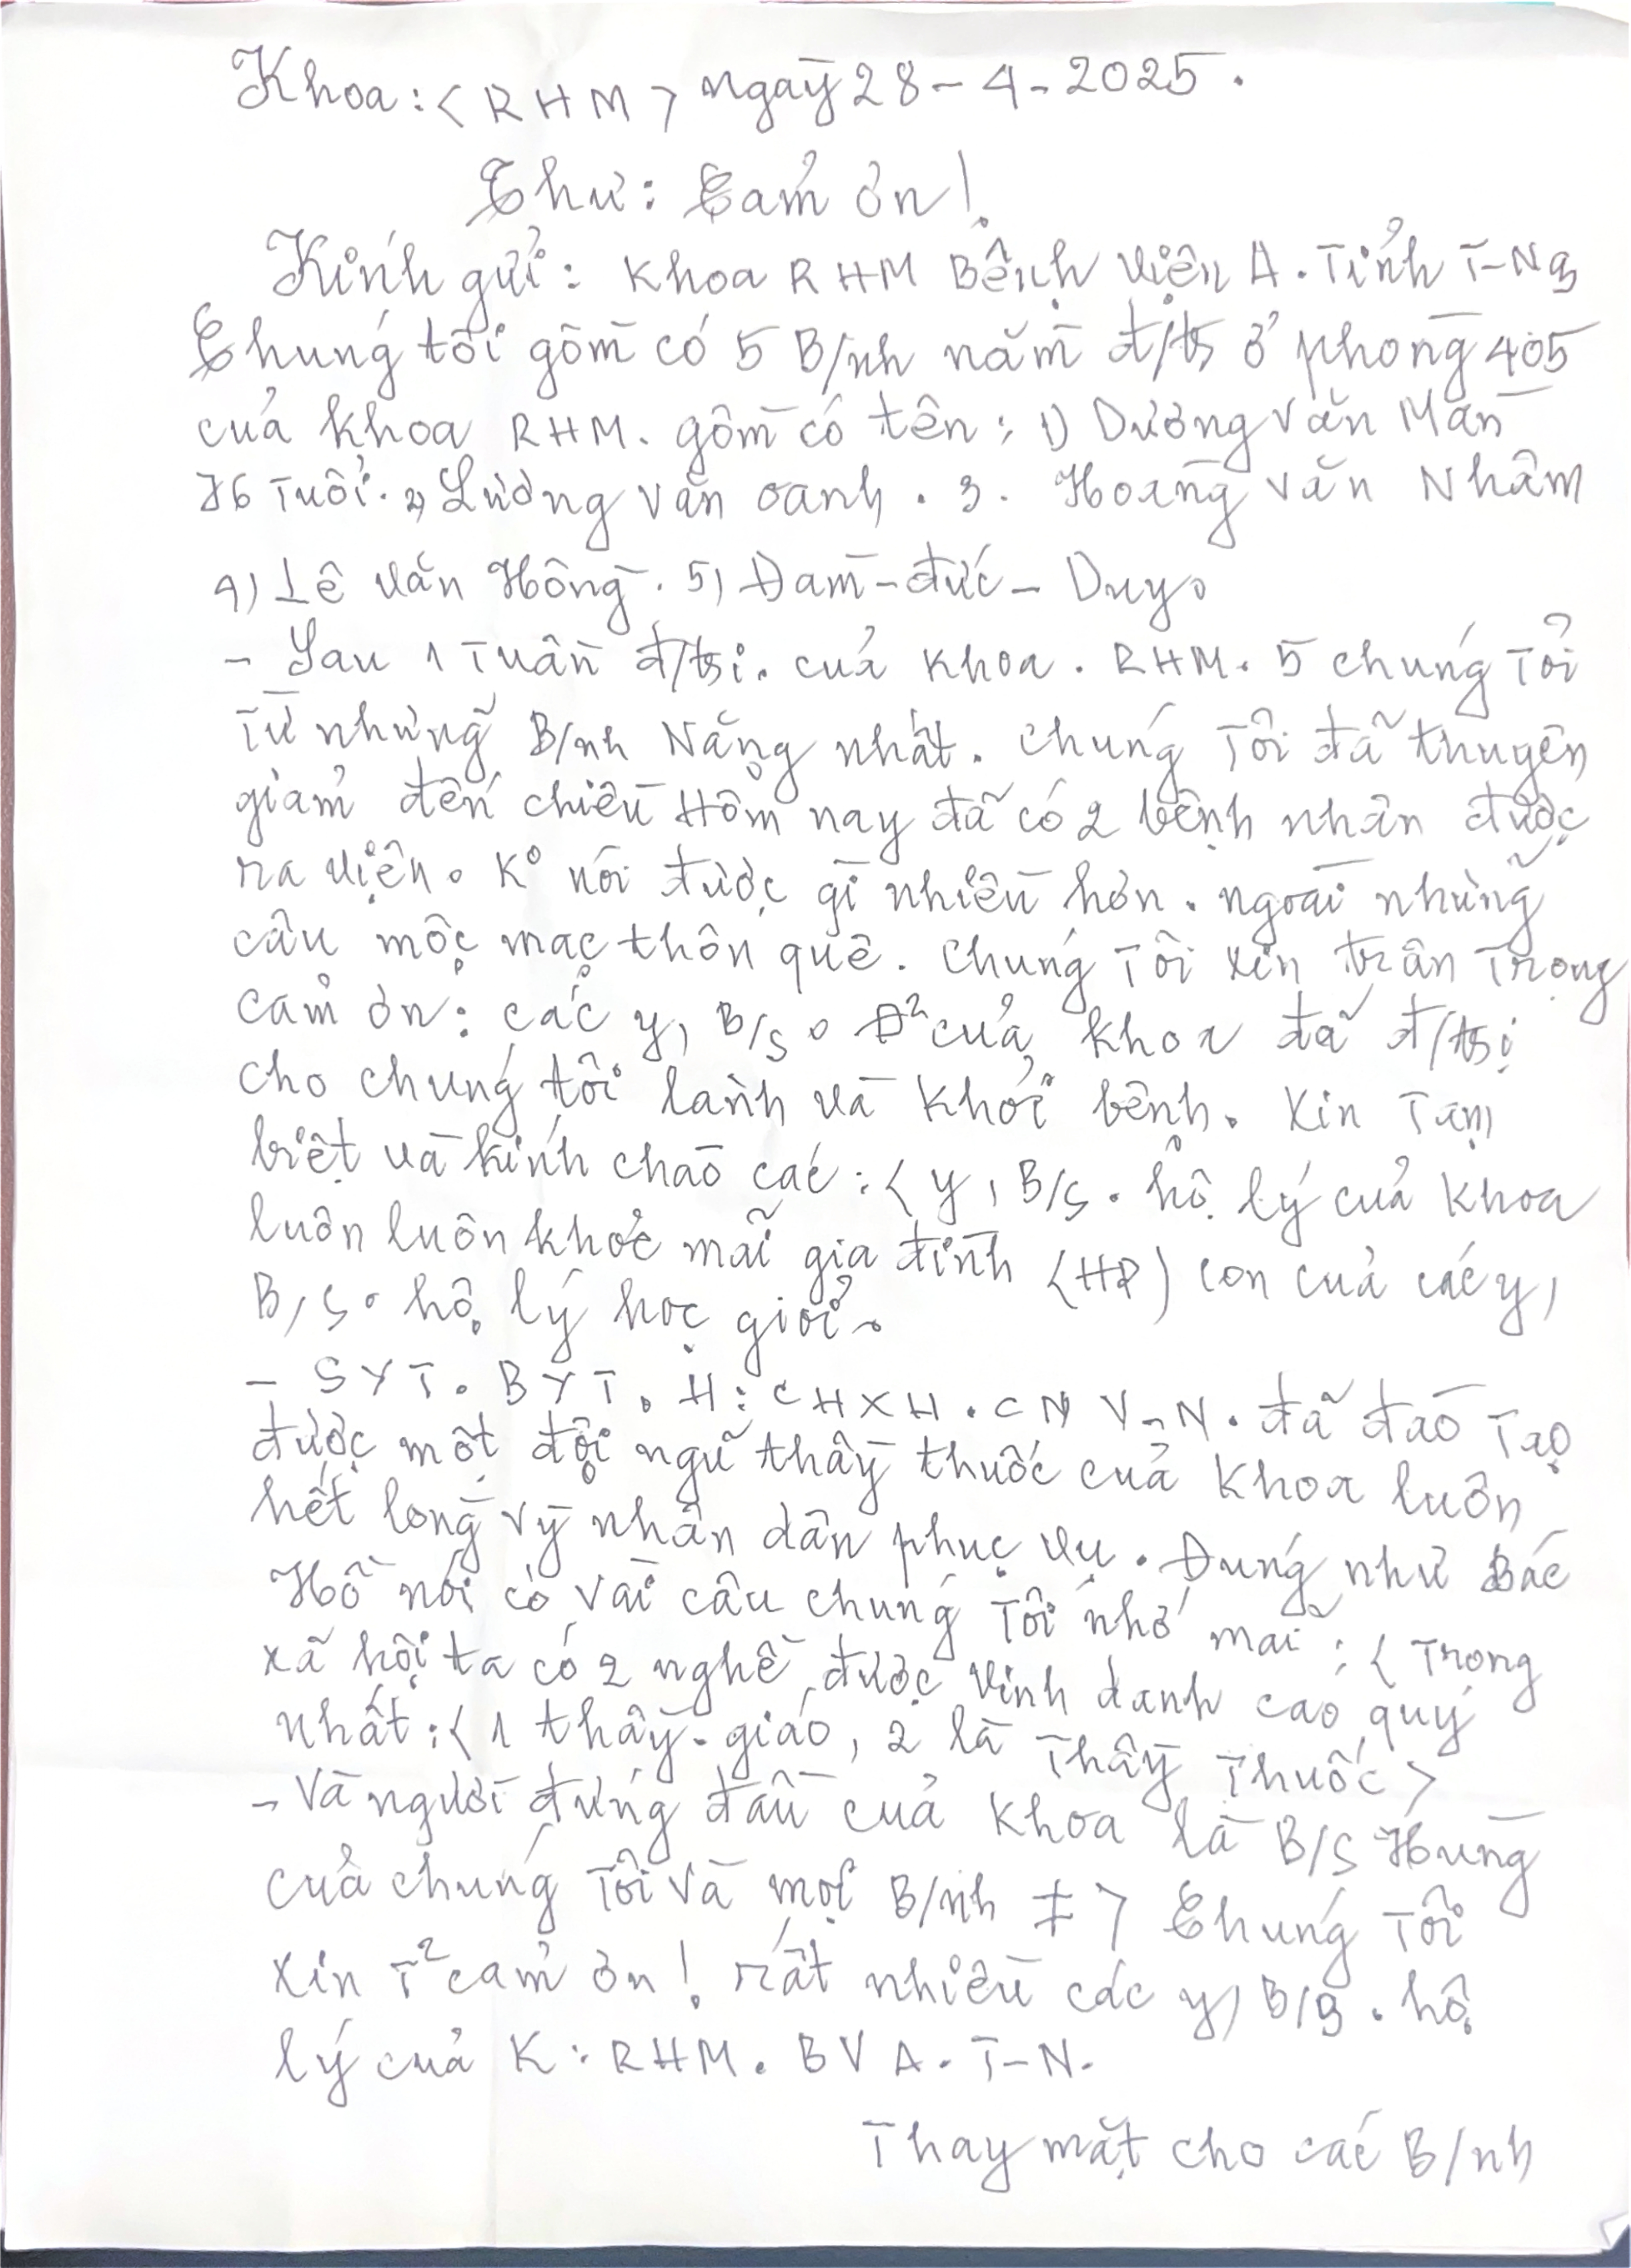 Khoa: < RHM > ngày 28 - 4 - 2025.
Thư: Cảm ơn!
Kính gửi: Khoa RHM Bệnh viện A. Tỉnh T-Ng
Chúng tôi gồm có 5 B/nh nằm đ/trị ở phòng 405
của khoa RHM. gồm có tên: 1) Dương Văn Mần
76 Tuổi. 2) Lường Văn Oanh. 3. Hoàng Văn Nhâm
4) Lê Văn Hồng. 5) Đàm - đức - Duy.
- Sau 1 Tuần đ/trị. của Khoa. RHM. 5 chúng Tôi
Từ những B/nh Nặng nhất. Chúng Tôi đã thuyên
giảm đến chiều Hôm nay đã có 2 bệnh nhân được
ra viện. K° nói được gì nhiều hơn. ngoài những
câu mộc mạc thôn quê. Chúng Tôi xin trân Trọng
cảm ơn: các y, B/s. Đ² của khoa đã đ/trị
cho chúng tôi lành và Khỏi bệnh. Xin Tạm
biệt và kính chào các: < y, B/s. hộ lý của Khoa
luôn luôn khỏe mãi gia đình (HP) con của các y,
B/s. hộ lý học giỏi.
- SYT. BYT. H: CHXH. CN V-N. đã đào Tạo
được một đội ngũ thầy thuốc của Khoa luôn
hết lòng vỳ nhân dân phục vụ. Đúng như Bác
Hồ nói có vài câu chúng Tôi nhớ mãi: < Trong
xã hội ta có 2 nghề được vinh danh cao quý
nhất: < 1 thầy - giáo, 2 là Thầy Thuốc >
- Và người đứng đầu của Khoa là B/s Hùng
của chúng Tôi và mọi B/nh ‡ > Chúng Tôi
xin T² cảm ơn! rất nhiều các y, B/s. hộ
lý của K: RHM. BV A. T-N.
Thay mặt cho các B/nh